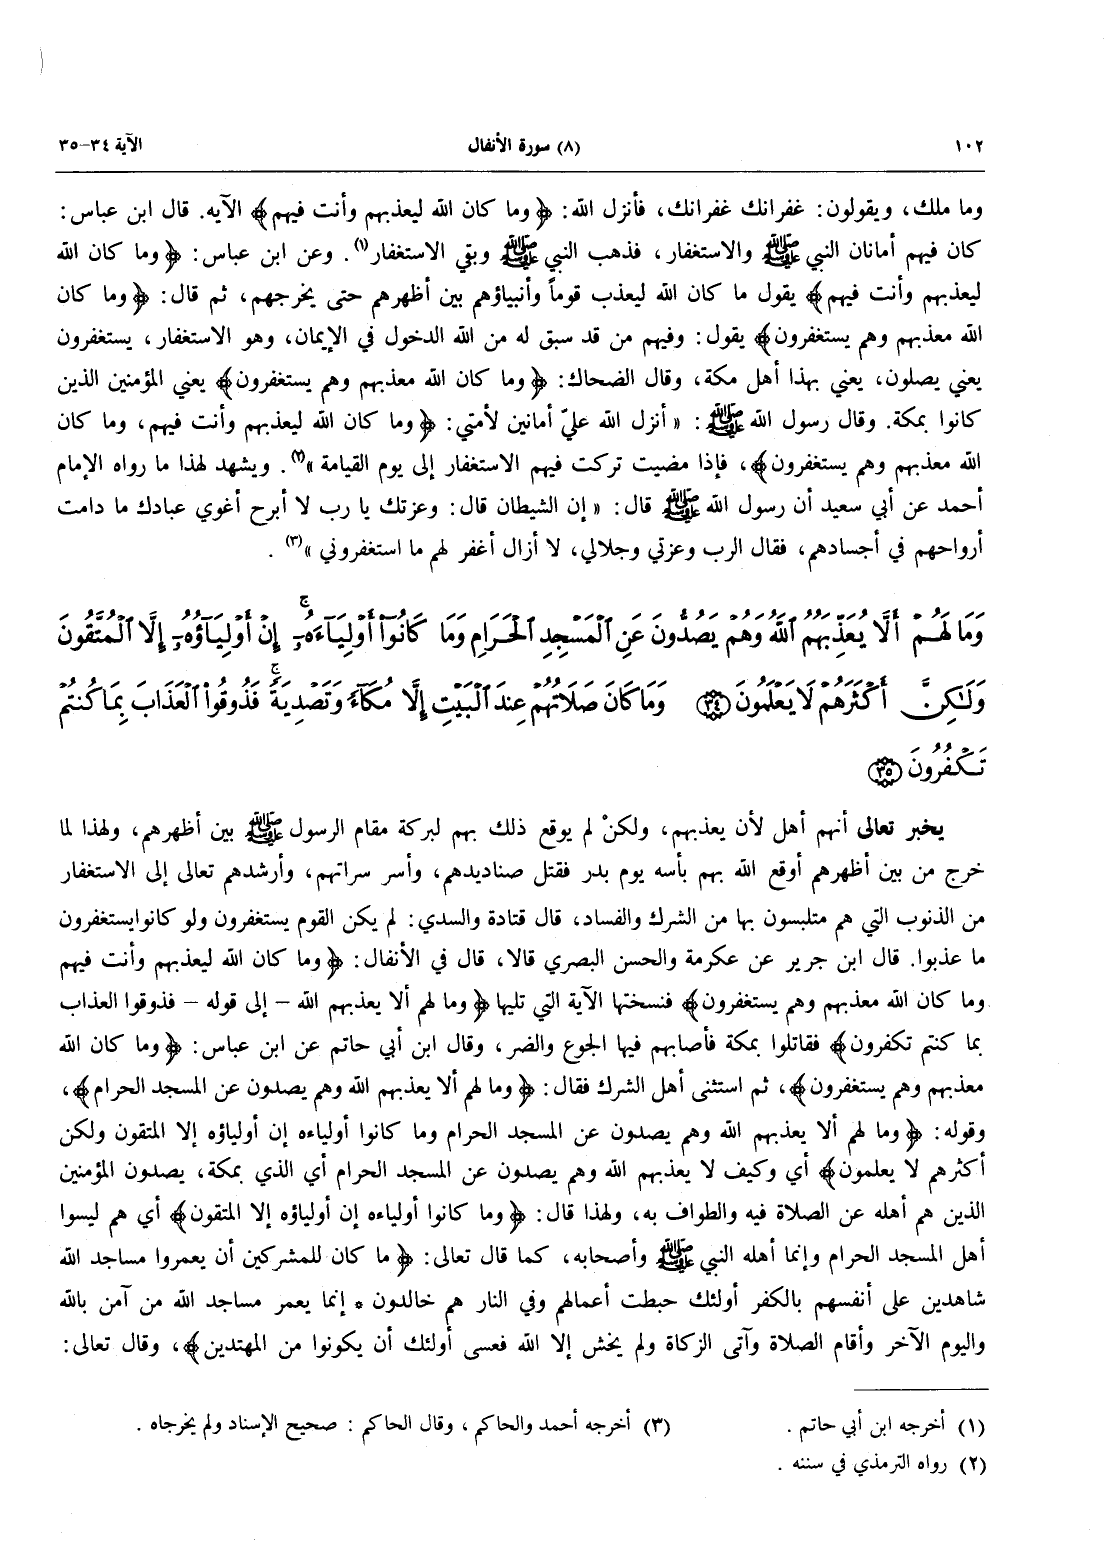 ١٠٢ (٨) سورة الأنفال الآية ٣٤-٣٥
وما ملك، ويقولون: غفرانك غفرانك، فأنزل الله: ﴿وما كان الله ليعذبهم وأنت فيهم﴾ الآيه. قال ابن عباس:
كان فيهم أمانان النبي ﷺ والاستغفار، فذهب النبي ﷺ وبقي الاستغفار(١). وعن ابن عباس: ﴿وما كان الله
ليعذبهم وأنت فيهم﴾ يقول ما كان الله ليعذب قوماً وأنبياؤهم بين أظهرهم حتى يخرجهم، ثم قال: ﴿وما كان
الله معذبهم وهم يستغفرون﴾ يقول: وفيهم من قد سبق له من الله الدخول في الإيمان، وهو الاستغفار، يستغفرون
يعني يصلون، يعني بهذا أهل مكة، وقال الضحاك: ﴿وما كان الله معذبهم وهم يستغفرون﴾ يعني المؤمنين الذين
كانوا بمكة. وقال رسول الله ﷺ: «أنزل الله عليّ أمانين لأمتي: ﴿وما كان الله ليعذبهم وأنت فيهم، وما كان
الله معذبهم وهم يستغفرون﴾، فإذا مضيت تركت فيهم الاستغفار إلى يوم القيامة»(٢). ويشهد لهذا ما رواه الإمام
أحمد عن أبي سعيد أن رسول الله ﷺ قال: «إن الشيطان قال: وعزتك يا رب لا أبرح أغوي عبادك ما دامت
أرواحهم في أجسادهم، فقال الرب وعزتي وجلالي، لا أزال أغفر لهم ما استغفروني»(٣).
وَمَا لَهُمْ أَلَّا يُعَذِّبَهُمُ ٱللَّهُ وَهُمْ يَصُدُّونَ عَنِ ٱلْمَسْجِدِ ٱلْحَرَامِ وَمَا كَانُوٓا۟ أَوْلِيَآءَهُۥٓ ۚ إِنْ أَوْلِيَآؤُهُۥٓ إِلَّا ٱلْمُتَّقُونَ
وَلَـٰكِنَّ أَكْثَرَهُمْ لَا يَعْلَمُونَ ﴿٣٤﴾ وَمَا كَانَ صَلَاتُهُمْ عِندَ ٱلْبَيْتِ إِلَّا مُكَآءً وَتَصْدِيَةً ۚ فَذُوقُوا۟ ٱلْعَذَابَ بِمَا كُنتُمْ
تَكْفُرُونَ ﴿٣٥﴾
يخبر تعالى أنهم أهل لأن يعذبهم، ولكنْ لم يوقع ذلك بهم لبركة مقام الرسول ﷺ بين أظهرهم، ولهذا لما
خرج من بين أظهرهم أوقع الله بهم بأسه يوم بدر فقتل صناديدهم، وأسر سراتهم، وأرشدهم تعالى إلى الاستغفار
من الذنوب التي هم متلبسون بها من الشرك والفساد، قال قتادة والسدي: لم يكن القوم يستغفرون ولو كانوايستغفرون
ما عذبوا. قال ابن جرير عن عكرمة والحسن البصري قالا، قال في الأنفال: ﴿وما كان الله ليعذبهم وأنت فيهم
وما كان الله معذبهم وهم يستغفرون﴾ فنسختها الآية التي تليها ﴿وما لهم ألا يعذبهم الله – إلى قوله – فذوقوا العذاب
بما كنتم تكفرون﴾ فقاتلوا بمكة فأصابهم فيها الجوع والضر، وقال ابن أبي حاتم عن ابن عباس: ﴿وما كان الله
معذبهم وهم يستغفرون﴾، ثم استثنى أهل الشرك فقال: ﴿وما لهم ألا يعذبهم الله وهم يصدون عن المسجد الحرام﴾،
وقوله: ﴿وما لهم ألا يعذبهم الله وهم يصدون عن المسجد الحرام وما كانوا أولياءه إن أولياؤه إلا المتقون ولكن
أكثرهم لا يعلمون﴾ أي وكيف لا يعذبهم الله وهم يصدون عن المسجد الحرام أي الذي بمكة، يصدون المؤمنين
الذين هم أهله عن الصلاة فيه والطواف به، ولهذا قال: ﴿وما كانوا أولياءه إن أولياؤه إلا المتقون﴾ أي هم ليسوا
أهل المسجد الحرام وإنما أهله النبي ﷺ وأصحابه، كما قال تعالى: ﴿ما كان للمشركين أن يعمروا مساجد الله
شاهدين على أنفسهم بالكفر أولئك حبطت أعمالهم وفي النار هم خالدون * إنما يعمر مساجد الله من آمن بالله
واليوم الآخر وأقام الصلاة وآتى الزكاة ولم يخش إلا الله فعسى أولئك أن يكونوا من المهتدين﴾، وقال تعالى:
(١) أخرجه ابن أبي حاتم. (٣) أخرجه أحمد والحاكم، وقال الحاكم: صحيح الإسناد ولم يخرجاه.
(٢) رواه الترمذي في سننه.